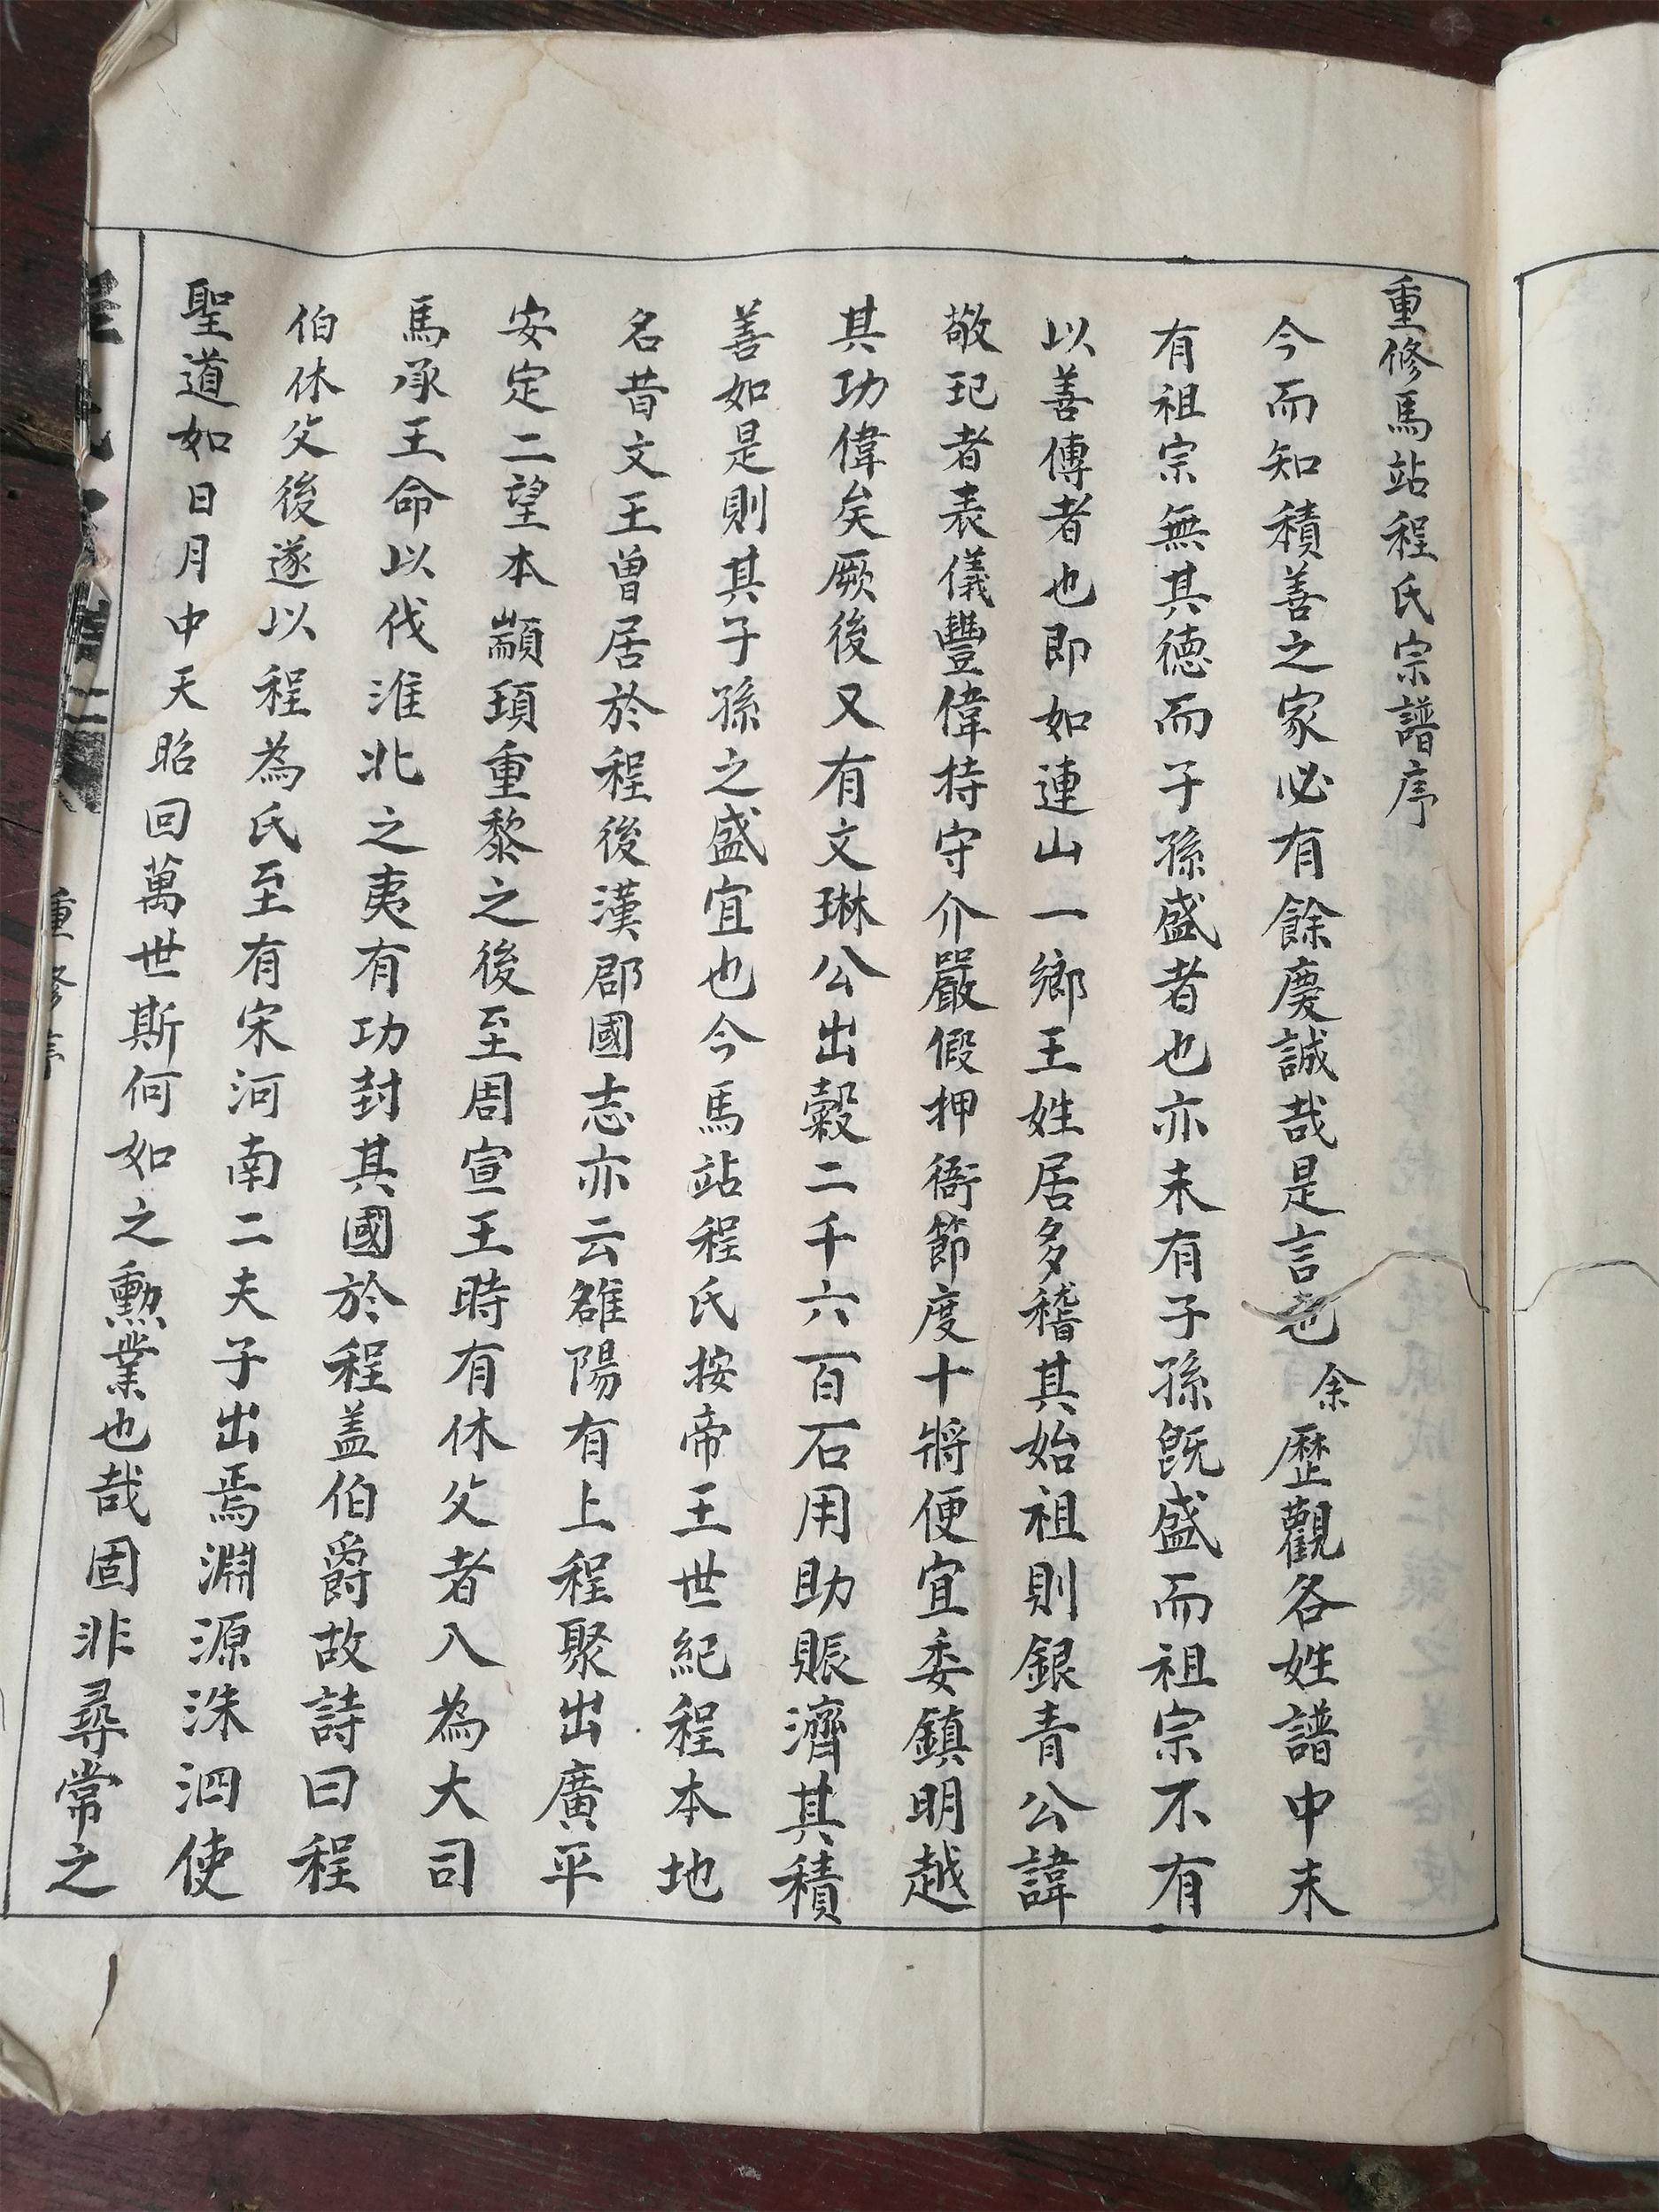 重修馬站程氏宗譜序
今而知積善之家必有餘慶誠哉是言也余歷觀各姓譜中未
有祖宗無其德而子孫盛者也亦未有子孫旣盛而祖宗不有
以善傳者也即如連山一鄉王姓居多稽其始祖則銀青公諱
敬玘者表儀豐偉持守介嚴假押衙節度十將便宜委鎮明越
其功偉矣厥後又有文琳公出穀二千六百石用助賑濟其積
善如是則其子孫之盛宜也今馬站程氏按帝王世紀程本地
名昔文王曾居於程後漢郡國志亦云雒陽有上程聚出廣平
安定二望本顓頊重黎之後至周宣王時有休父者入為大司
馬承王命以伐淮北之夷有功封其國於程盖伯爵故詩曰程
伯休父後遂以程為氏至有宋河南二夫子出焉淵源洙泗使
聖道如日月中天昭回萬世斯何如之勲業也哉固非尋常之
重修序